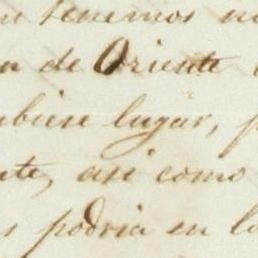 tenemos no
n de Oriente
ubiese lugar, p
nte, asi como
s podria en lo